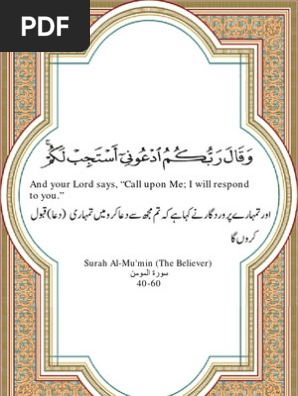 PDF
وَقَالَ رَبُّكُمُ ادْعُونِي أَسْتَجِبْ لَكُمْ ۚ
And your Lord says, “Call upon Me; I will respond
to you.”
اور تمہارے پروردگار نے کہا ہے کہ تم مجھ سے دعا کرو میں تمہاری (دعا) قبول
کروں گا
Surah Al-Mu'min (The Believer)
سورة المومن
40-60